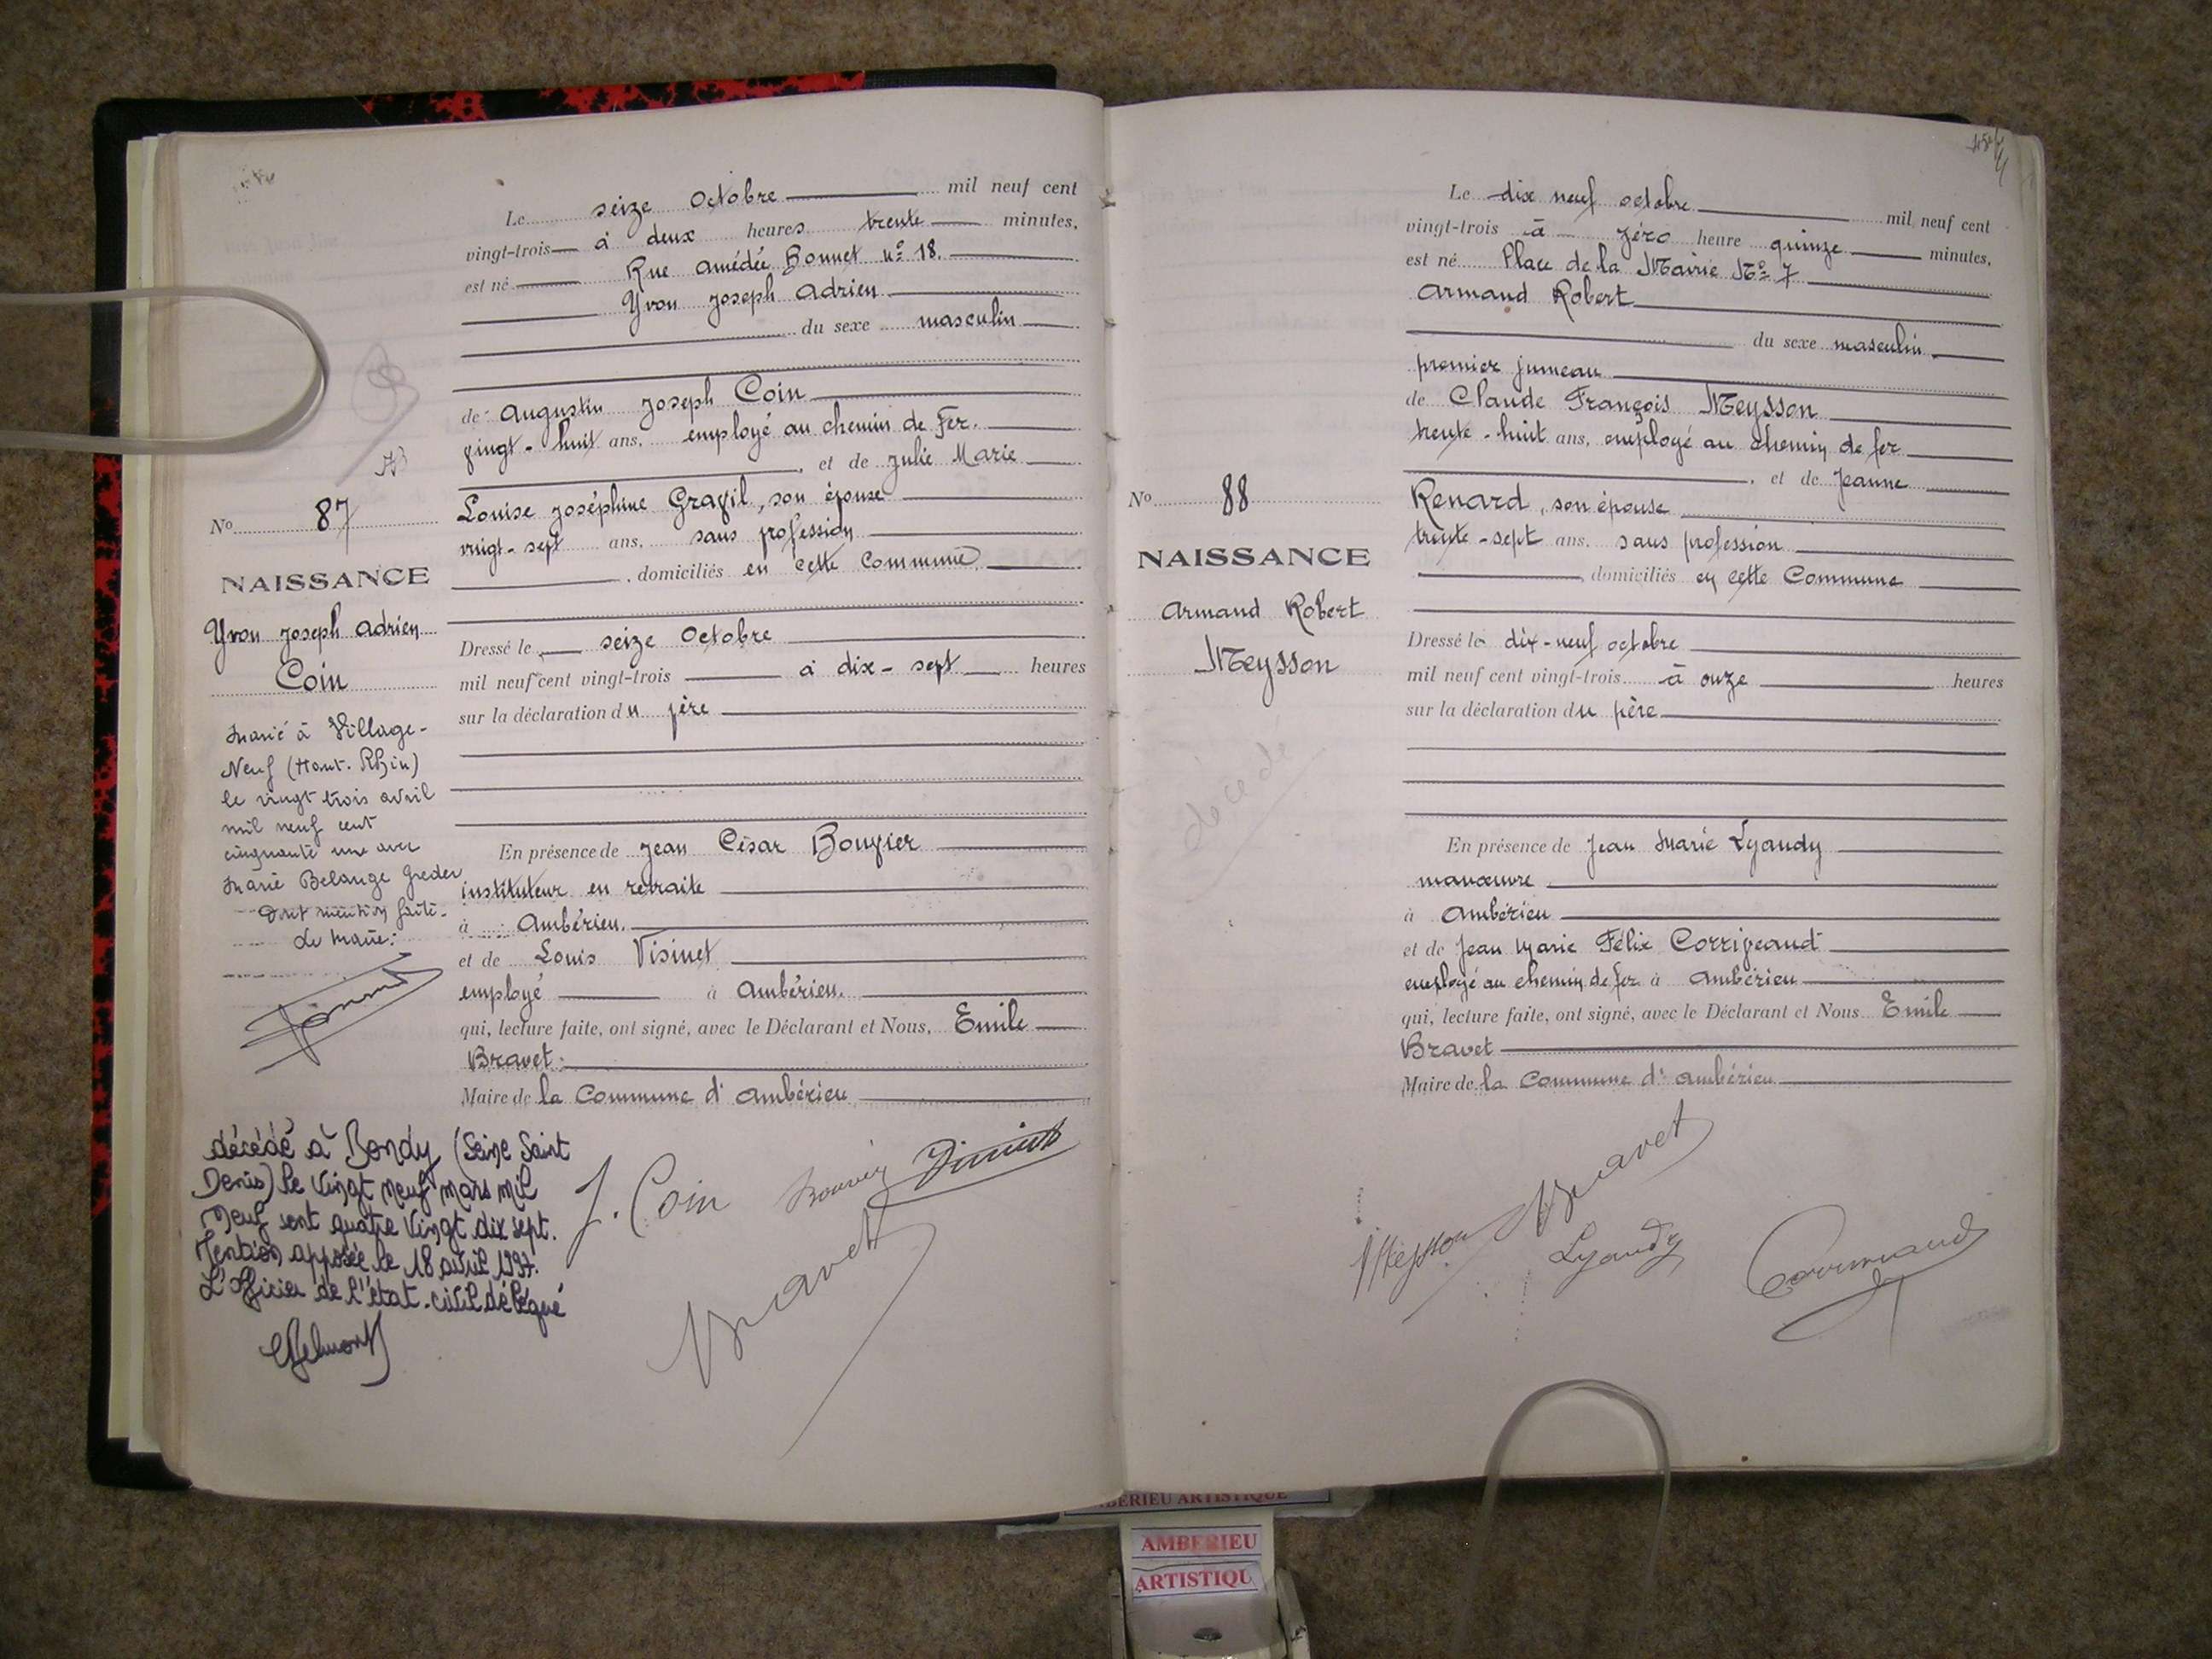 Le seize Octobre mil neuf cent
vingt-trois à deux heures trente minutes,
est né Rue Amédée Bonnet N° 18.
Yvon Joseph Adrien
du sexe masculin
de Augustin Joseph Coin
vingt-huit ans, employé au chemin de Fer.
, et de Julie Marie
Louise Joséphine Gravil, son épouse
vingt-sept ans, sans profession
, domiciliés en cette Commune
N° 87
NAISSANCE
Yvon Joseph Adrien
Coin
Dressé le seize Octobre
mil neuf cent vingt-trois à dix-sept heures
sur la déclaration du père
Marié à Village-
Neuf (Haut-Rhin)
le vingt trois avril
mil neuf cent
cinquante une avec
Marie Belange Greder
Dont mention faite.
Le Maire:
En présence de Jean César Bouvier
instituteur en retraite
à Ambérieu.
et de Louis Visinet
employé à Ambérieu.
qui, lecture faite, ont signé, avec le Déclarant et Nous, Emile
Bravet
Maire de la Commune d'Ambérieu
décédé à Bondy (Seine Saint
Denis) le vingt neuf mars mil
neuf sent quatre vingt dix sept.
Mention apposée le 18 avril 1997.
L'officier de l'état-civil délégué
J. Coin Bouvier
Bravet
Le dix neuf octobre mil neuf cent
vingt-trois à zéro heure quinze minutes,
est né Place de la Mairie N° 7
Armand Robert
du sexe masculin
premier jumeau
de Claude François Meysson
trente-huit ans, employé au chemin de fer
, et de Jeanne
Renard, son épouse
trente-sept ans, sans profession
, domiciliés en cette Commune
N° 88
NAISSANCE
Armand Robert
Meysson
décédé
Dressé le dix-neuf octobre
mil neuf cent vingt-trois à onze heures
sur la déclaration du père
En présence de Jean Marie Lyaudy
manœuvre
à Ambérieu
et de Jean Marie Félix Corrigeaud
employé au chemin de fer à Ambérieu
qui, lecture faite, ont signé, avec le Déclarant et Nous Emile
Bravet
Maire de la Commune d'Ambérieu
Meysson Bravet
Lyaudy
AMBERIEU ARTISTIQUE
AMBERIEU
ARTISTIQU